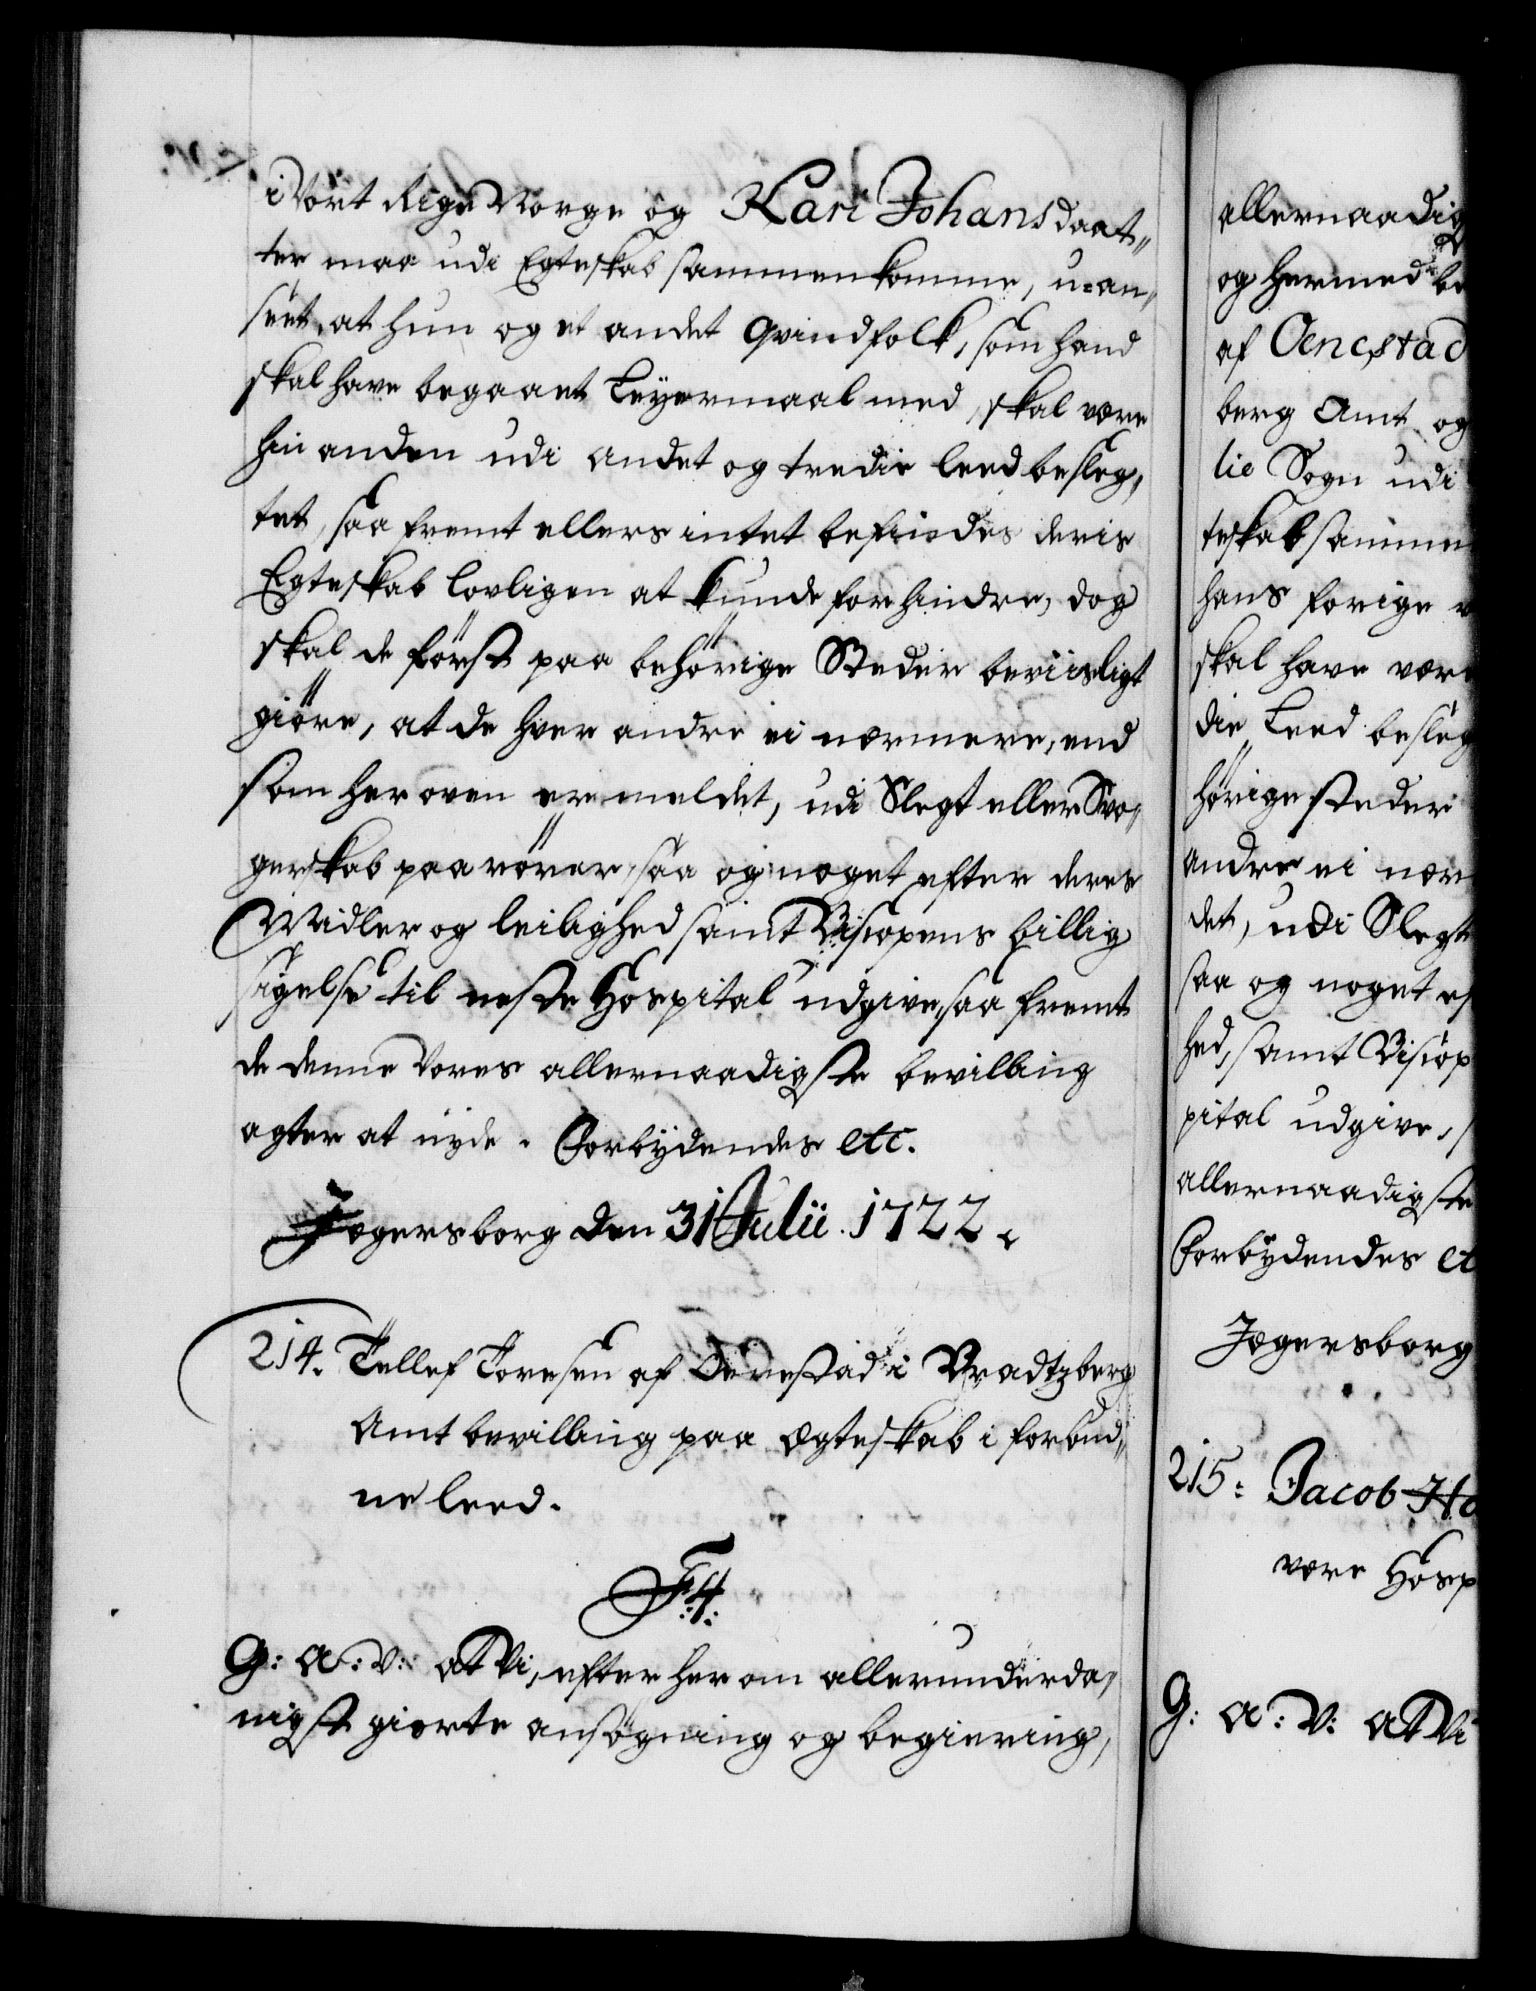 i Vort Rige Norge og Kari Johansdaat„
ter maa udi Egteskab sammenkomme, u-an„
seet, at hun og et andet Qvindfolk, som hand
skal have begaaet Leyermaal med, skal være
hin anden udi andet og tredie leed besleg„
tet, saa fremt ellers intet befindes deris
Egteskab lovligen at kunde forhindre, dog
skal de först paa behörige Steder beviisligt
giöre, at de hver andre ei nærmere, end
som her oven er meldet, udi Slegt eller Svo„
gerskab paarörer, saa og noget efter deres
Midler og leilighed samt Biscopens billig
sigelse til neste Hospital udgive, saa fremt
de denne Vores allernaadigste bevilling
agter at nyde. Forbydendes etc.
Jægersborg den 31 Julii. 1722.
214. Tellef Toresen af Oenestad i Bradtzberg
Amt bevilling paa Ægteskab i forbud„
ne leed.
F:4:
G: A: V: at Vi, efter her om allerunderda„
nigst giorte ansøgning og begiering,
allernaadig
og hermed be
af Oenestad
berg Amt og
lie Sogn udi
teskab sammen
hans forige
skal have være
die Leed besleg
hörige steder
andre ei nær
det, udi Slegt
saa og noget ef
hed, samt Biscop
pital udgive, s
allernaadigste
Forbydendes et
Jægersborg
215: Jacob
være Hosp
G: A: V: at Vi